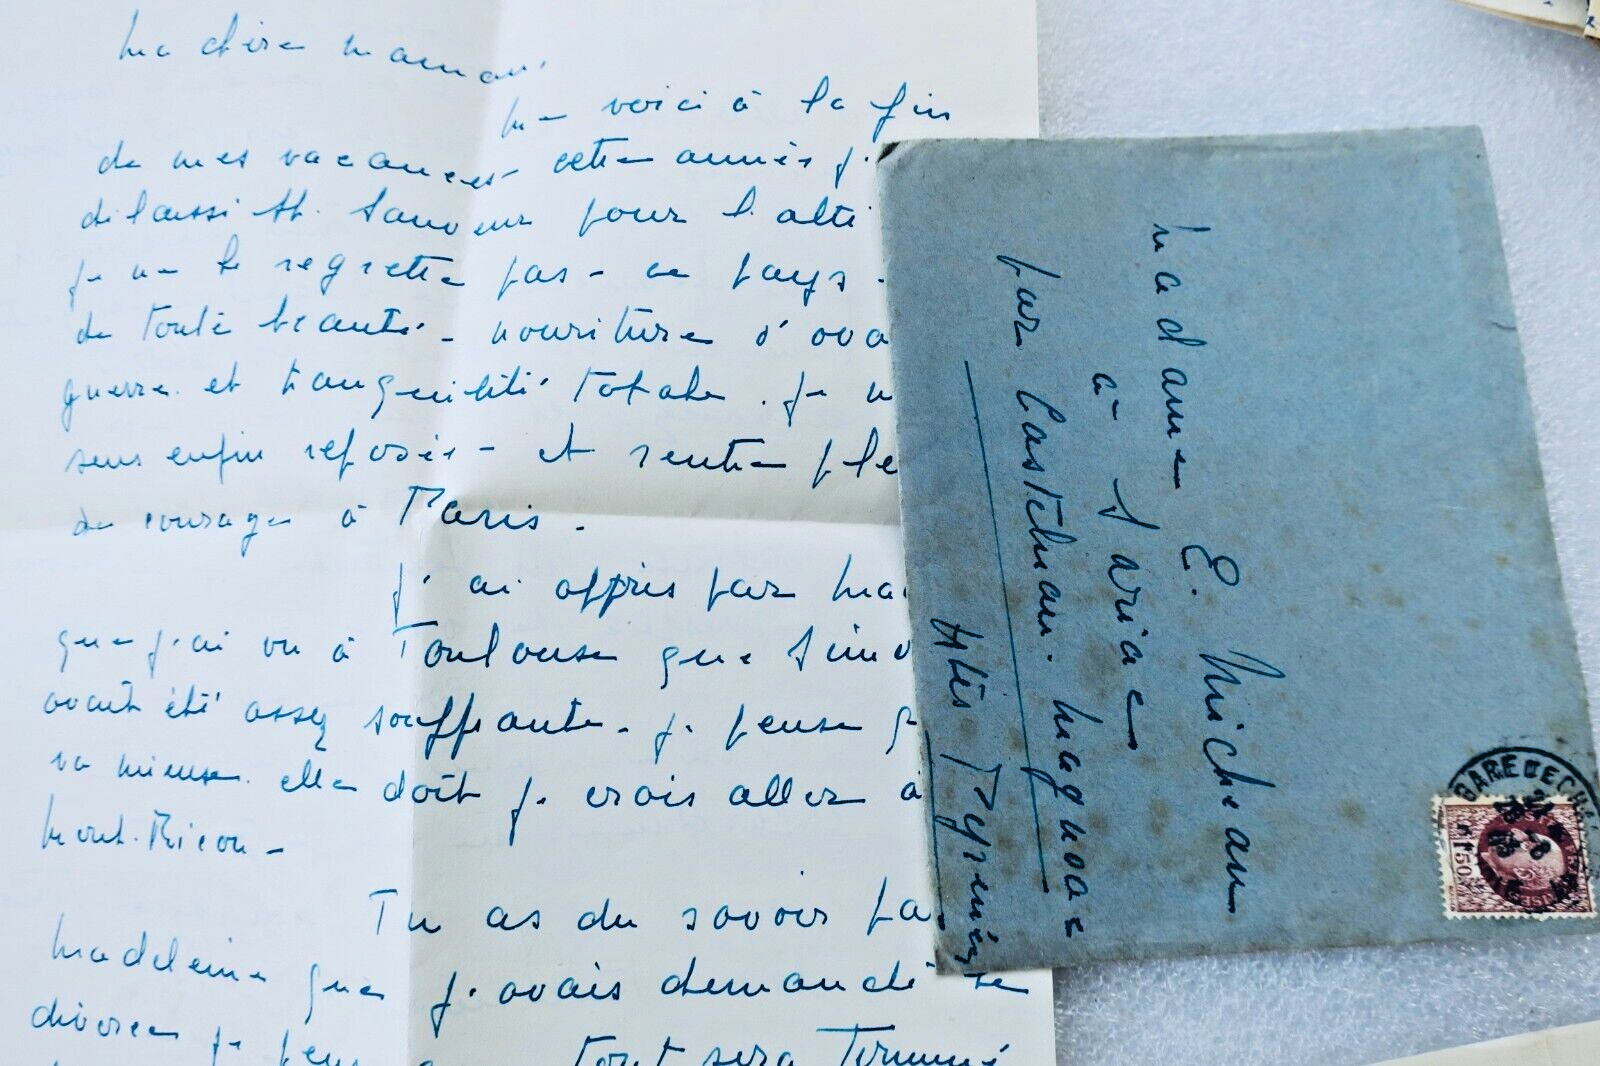 Ma chère maman
Me voici à la fin
de mes vacances - cette année j'
délaissé St. Sauveur pour l'alti
je ne le regrette pas - ce pays
de toute beauté - nourriture d'ava
guerre et tranquilité totale. Je
sens enfin reposée - et rentre ple
de courage à Paris -
J'ai appris par
que j'ai vu à Toulouse que Simo
avait été assez souffrante - je pense
va mieux. elle doit je crois aller à
Mont-Ricou -
Tu as du savoir pa
Madeleine que j'avais demandé le
divorce je pens
tout sera terminé
Madame E. Micheau
à Sariac
par Castelnau. Magnoac
Htes Pyrénées
GARE DE
1F50